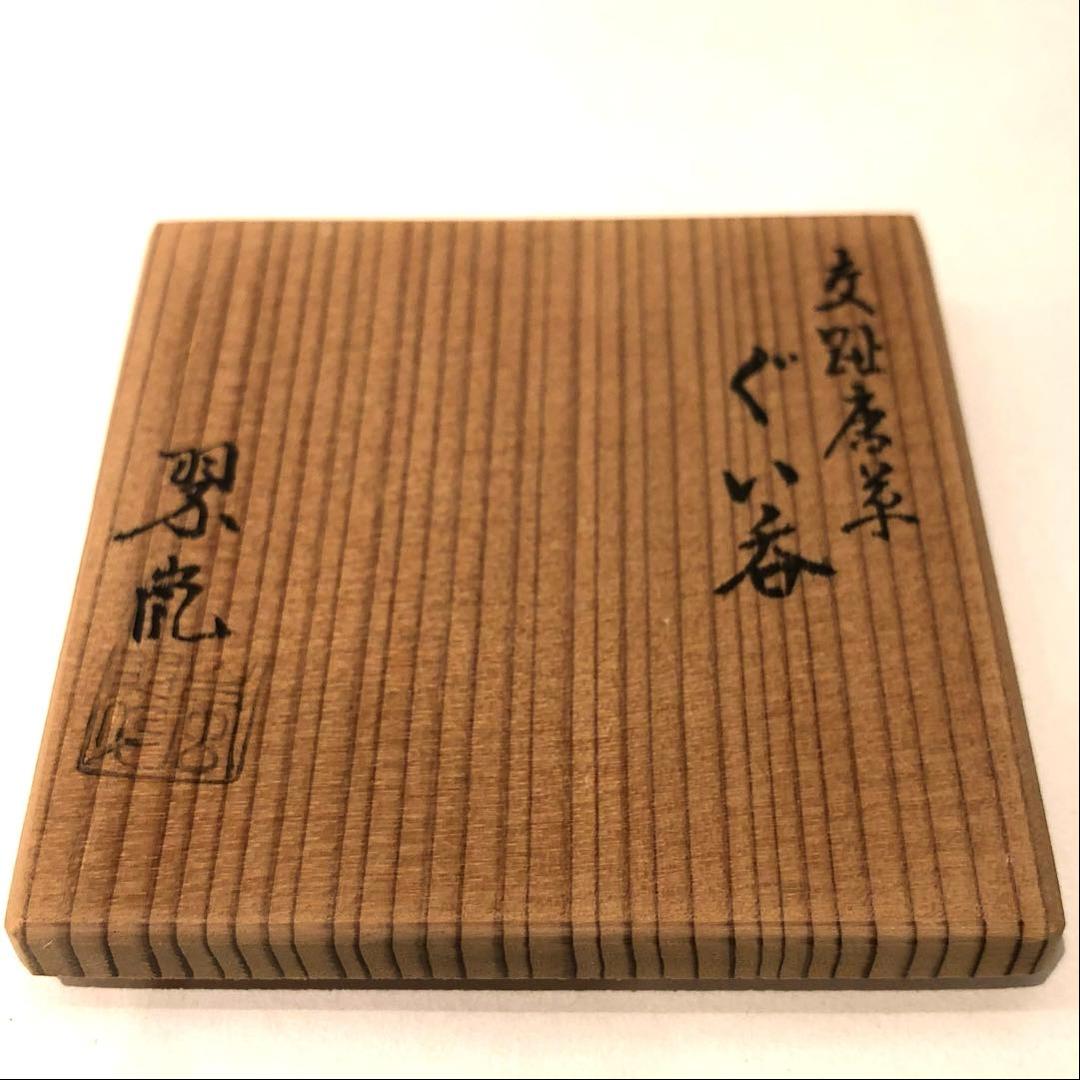 交趾唐草
ぐい呑
翠嵐